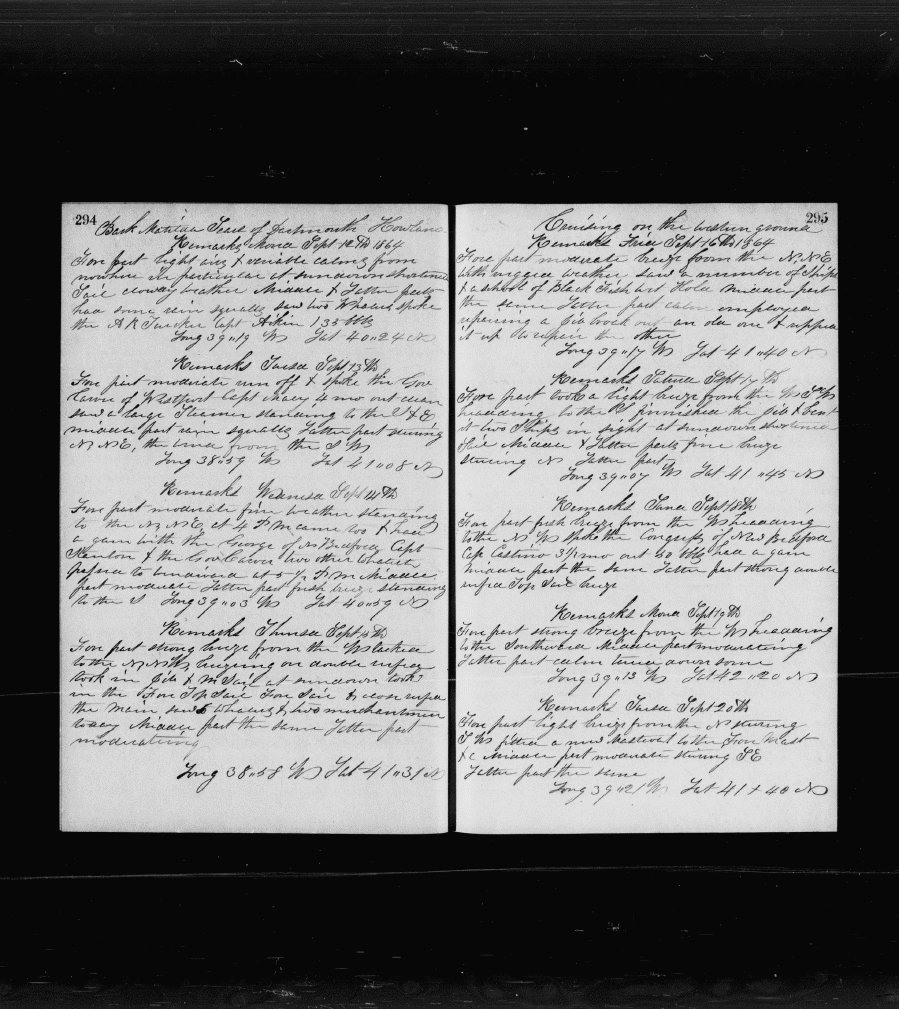 294
Bark Matilda Sears of Dartmouth Howland
Remarks Mond Sept 12th 1864
Fore part light airs & variable calms from
nowhere in particular at sundown shortened
Sail cloudy weather Middle & Latter parts
had some rain squalls saw two Whalers spoke
the A R Tucker Capt Aikin 135 bbls
Long 39"19 W Lat 40"24 N
Remarks Tuesd Sept 13th
Fore part moderate run off & spoke the Gov
Carver of Westport Capt Macy 4 mo out clean
saw a large Steamer standing to the S & E
middle part rain squalls Latter part steering
N N E, the wind from the S W
Long 38"59 W Lat 41"08 N
Remarks Wednesd Sept 14th
Fore part moderate fine weather standing
to the N, N, E, at 4 P M came too & had
a gam with the George of N Bedford Capt
& the Gov Carver two other Whalers
passed to windward at 5 ½ P, M, Middle
part moderate Latter part fresh breeze standing
to the S Long 39"03 W Lat 40"59 N
Remarks Thursd Sept 15th
Fore part strong breeze from the W tacked
to the N, N, W, breezing on double reefed
took in Jib & M Sail at sundown took
in the Fore Top Sail Fore Sail & close reefed
the main saw 5 whalers & two merchantmen
today Middle part the same Latter part
moderateing
Long 38"58 W Lat 41"31 N
295
Cruising on the western ground
Remarks Frid Sept 16th 1864
Fore part moderate breeze from the N, N, E
with rugged weather saw a number of Ships
& a school of Black Fish Middle part
the same Latter part calm employed
repairing a Jib took out an old one &
it up to repair the other
Long 39"17 W Lat 41"40 N
Remarks Saturd Sept 17th
Fore part took a light breeze from the W S W
heading to the finnished the Jib & bent
it two Ships in sight at sundown shortened
Sail Middle & Latter parts fine breeze
steering N Latter part
Long 39"07 W Lat 41"45 N
Remarks Sund Sept 18th
Fore part fresh breeze from the W headding
to the N, W, spoke the Congress of New Bedford
Cap Castino 3½ mo out 50 bbls had a gam
Middle part the same Latter part strong double
reefed Top Sail breeze
Remarks Mond Sept 19th
Fore part strong breeze from the W headding
to the Southward Middle part moderateing
Latter part calm lined down some
Long 39"13 W Lat 42"20 N
Remarks Tuesd Sept 20th
Fore part light breeze from the N steering
S W fitted a new to the Fore Mast
&c Middle part moderate steering S E
Latter part the same
Long 39"21 W Lat 41+40 N